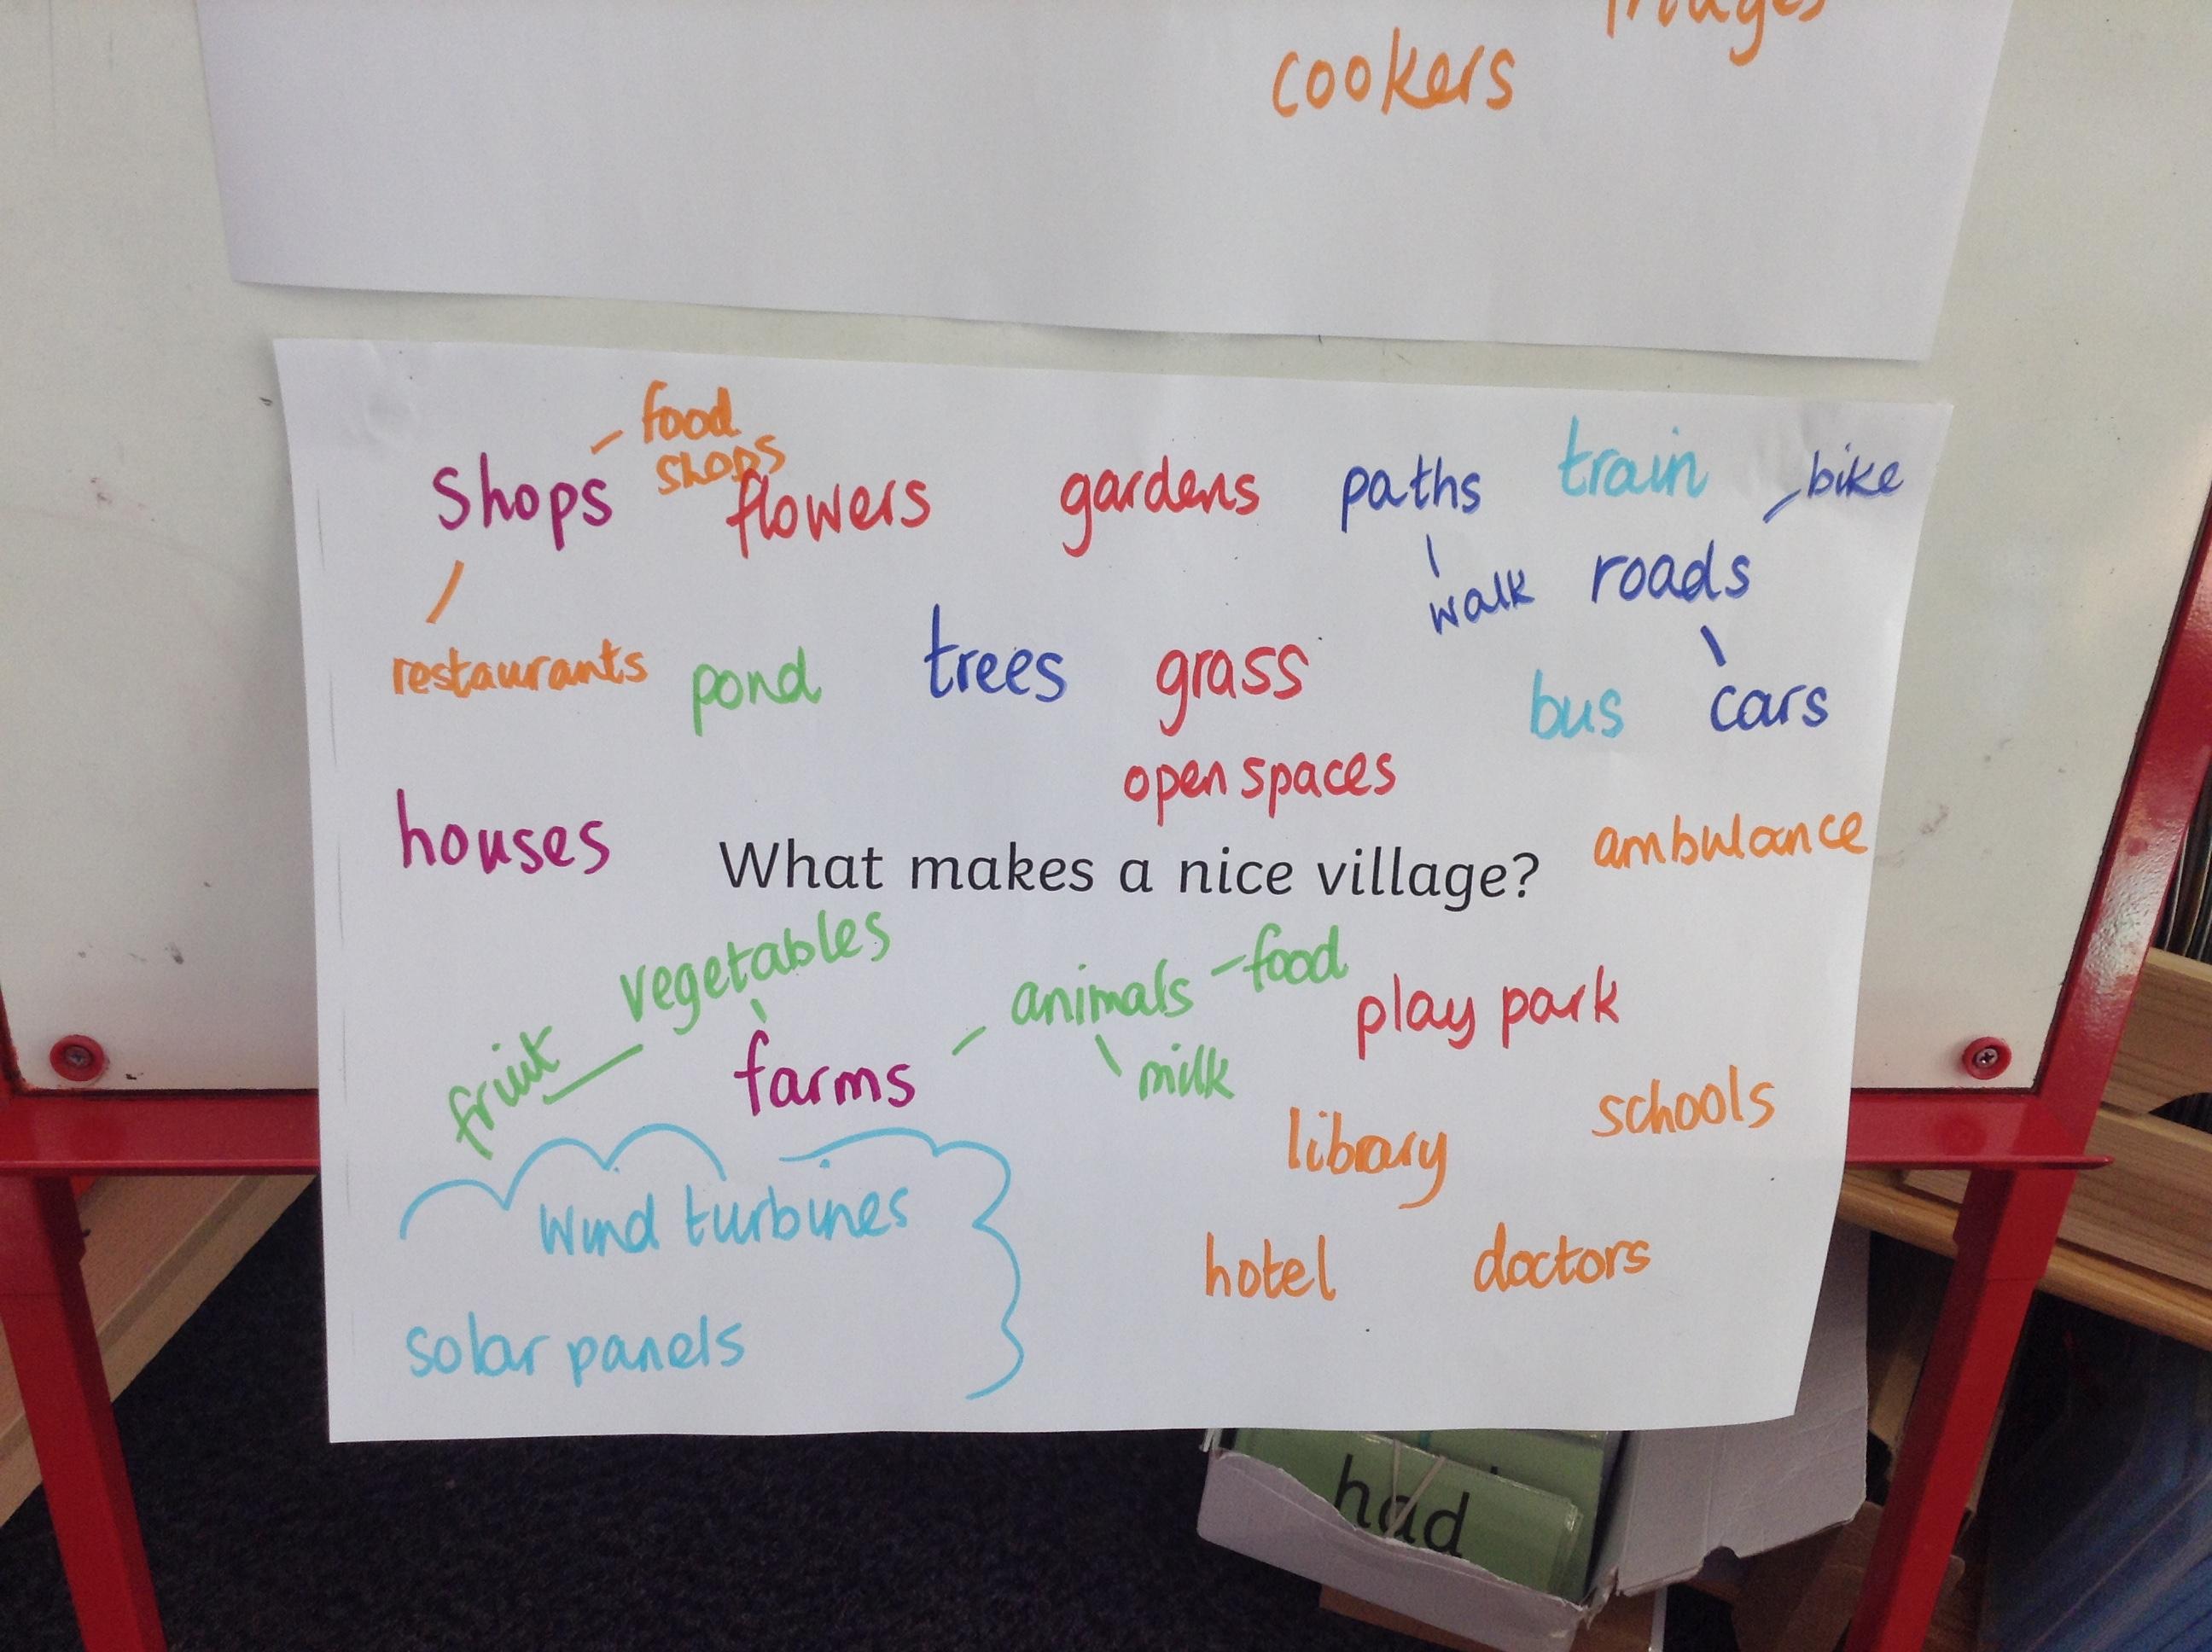 fridges
cookers
food
shops
shops
flowers
gardens
paths
train
bike
walk
roads
restaurants
pond
trees
grass
bus
cars
open spaces
houses
What makes a nice village?
ambulance
vegetables
animals
food
play park
fruit
farms
milk
library
schools
wind turbines
hotel
doctors
solar panels
had